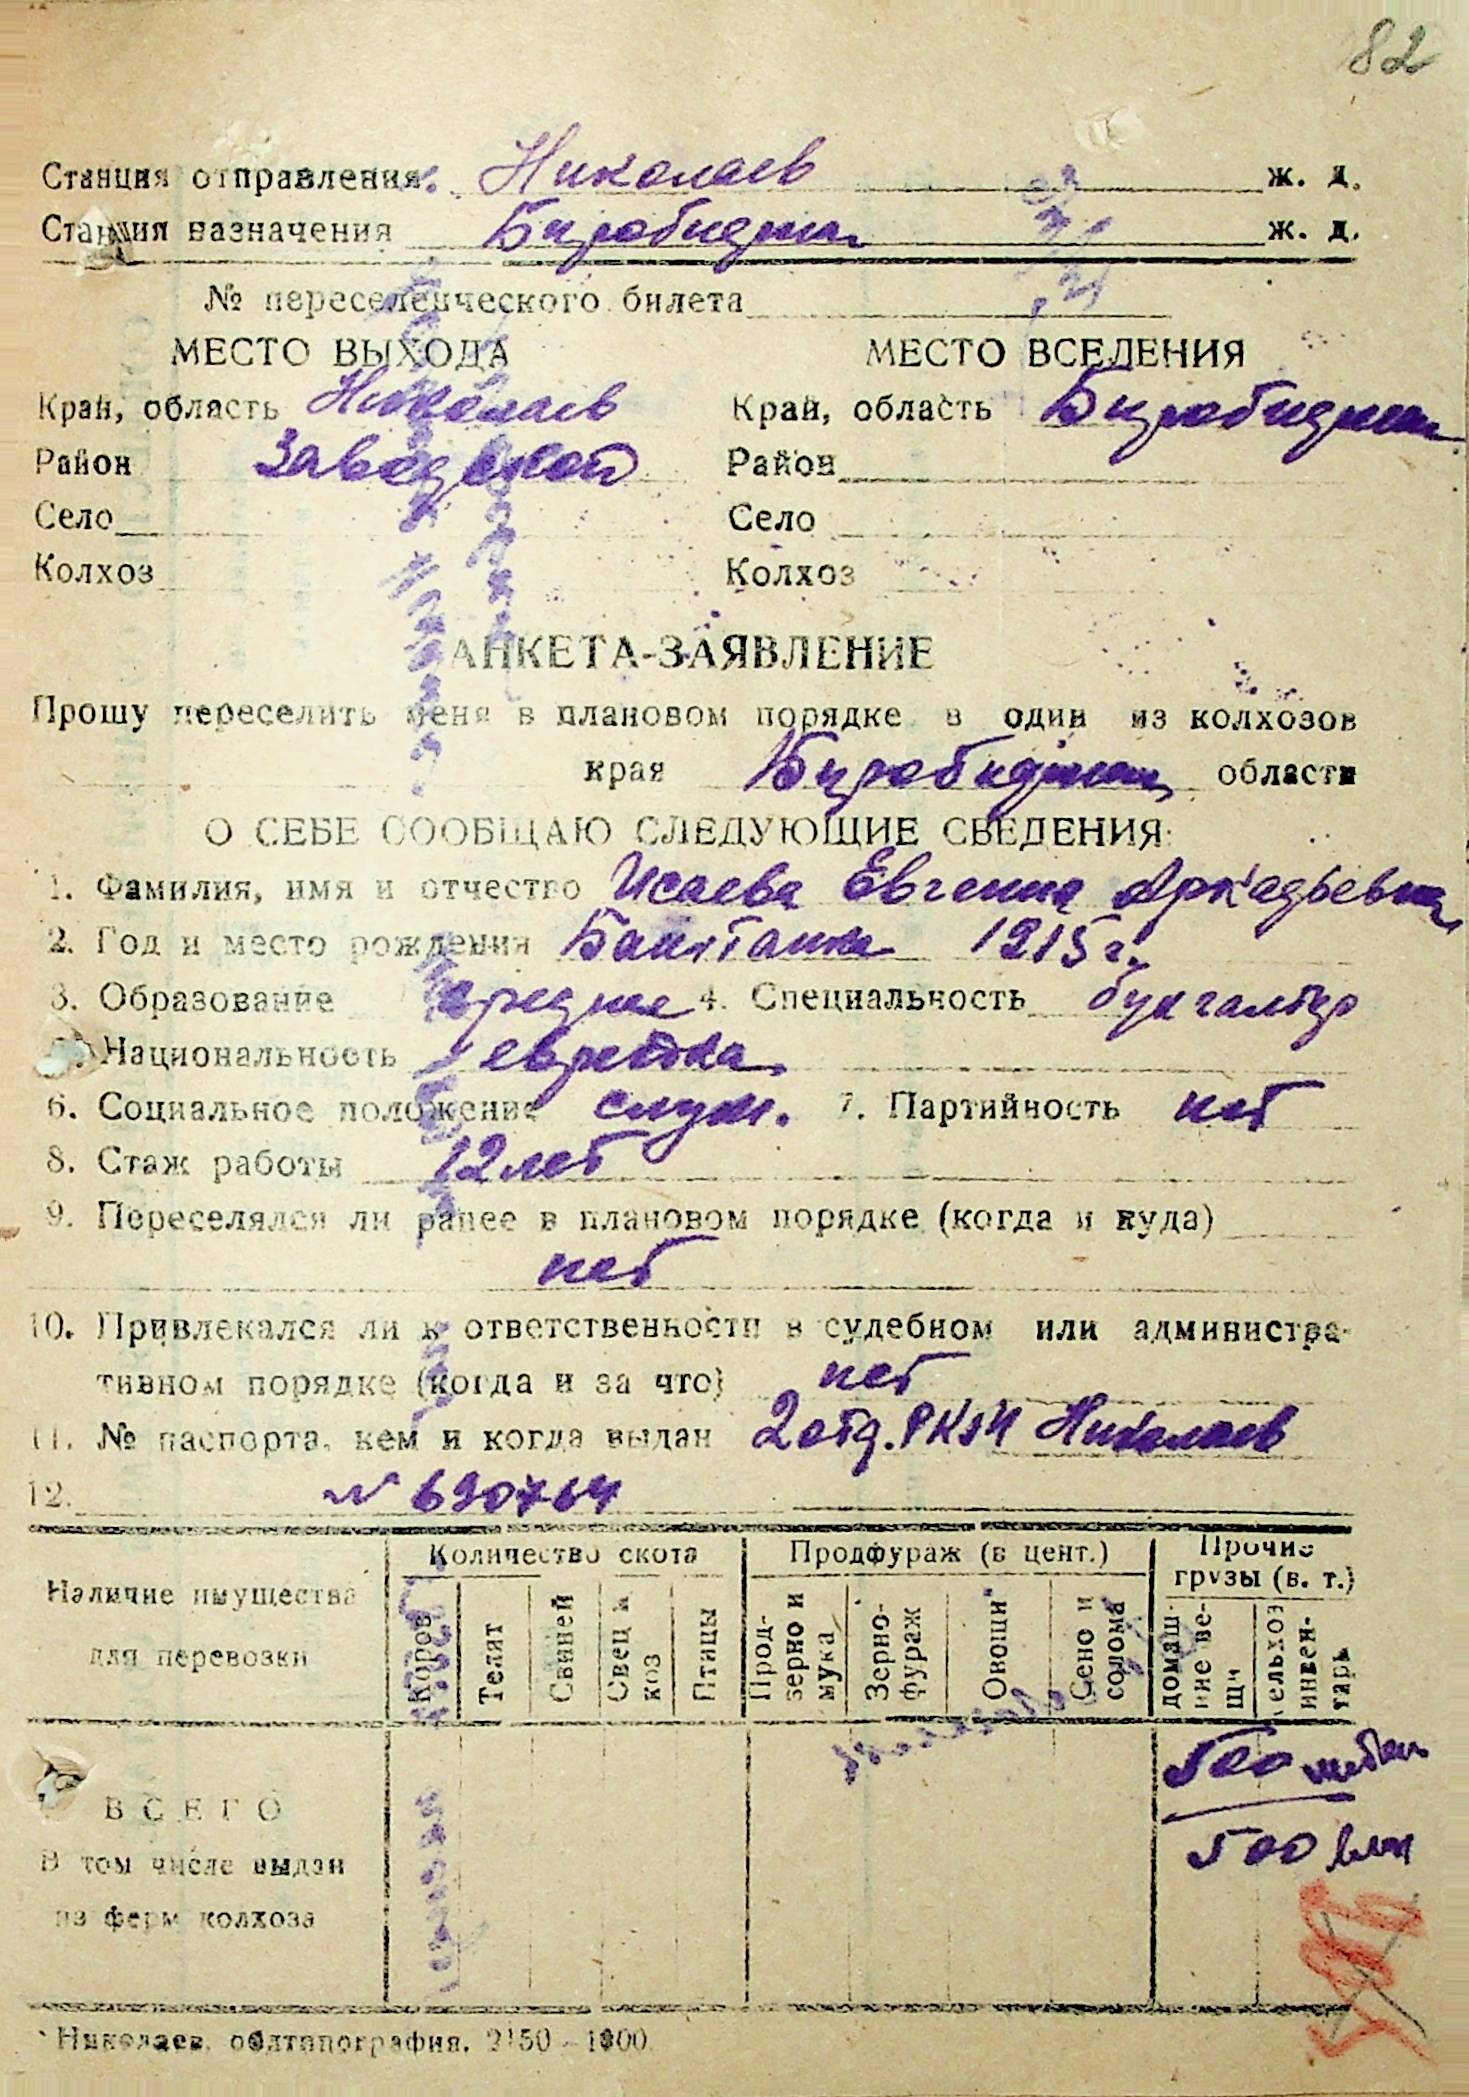 82
Станция отправления Николаев ж. д.
Станция назначения Биробиджан ж. д.
№ переселенческого билета
МЕСТО ВЫХОДА МЕСТО ВСЕЛЕНИЯ
Край, область Николаев Край, область Биробиджан
Район Заводской Район
Село Село
Колхоз Колхоз
АНКЕТА-ЗАЯВЛЕНИЕ
Прошу переселить меня в плановом порядке в один из колхозов
края Биробиджан области
О СЕБЕ СООБЩАЮ СЛЕДУЮЩИЕ СВЕДЕНИЯ:
1. Фамилия, имя и отчество Исаева Евгения Аркадьевна
2. Год и место рождения 1915 г.
3. Образование среднее 4. Специальность бухгалтер
Национальность еврейка
6. Социальное положение служ. 7. Партийность нет
8. Стаж работы 12 лет
9. Переселялся ли ранее в плановом порядке (когда и куда)
нет
10. Привлекался ли к ответственности в судебном или администра-
тивном порядке (когда и за что) нет
11. № паспорта, кем и когда выдан 2 отд. РКМ Николаев
12. № 690764
Наличие имущества для перевозки
Количество скота
Продфураж (в цент.)
Прочие грузы (в. т.)
Коров
Телят
Свиней
Овец и коз
Птицы
Прод-зерно и мука
Зерно-фураж
Овощи
Сено и солома
домаш-ние ве-щи
сельхоз инвен-тарь
500
ВСЕГО
500
В том числе выдан
из ферм колхоза
Николаев, облтипография. 2150 - 1000